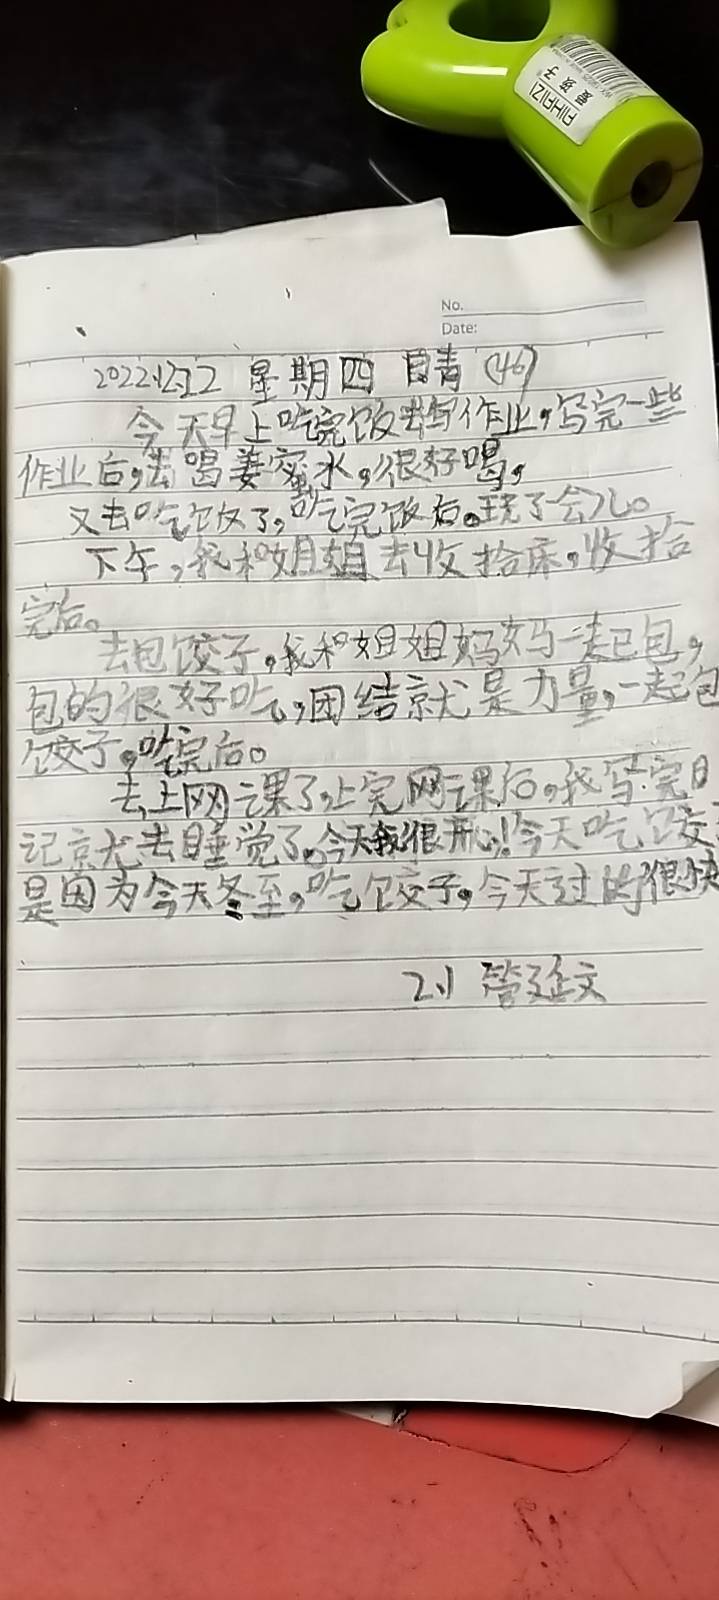 AIHAIZI
爱孩子
No.
Date:
2022.12.22 星期四 晴 (46)
今天早上吃完饭去写作业,写完一些
作业后,去喝姜蜜水,很好喝,
又去吃饭了,吃完饭后。玩了会儿。
下午,我和姐姐去收拾床,收拾
完后。
去包饺子,我和姐姐妈妈一起包,
包的很好吃,团结就是力量,一起包
饺子,吃完后。
去上网课了,上完网课后,我写完日
记就去睡觉了,今天我很开心!今天吃饺子
是因为今天冬至,吃饺子,今天过的很快
2.1 管廷文